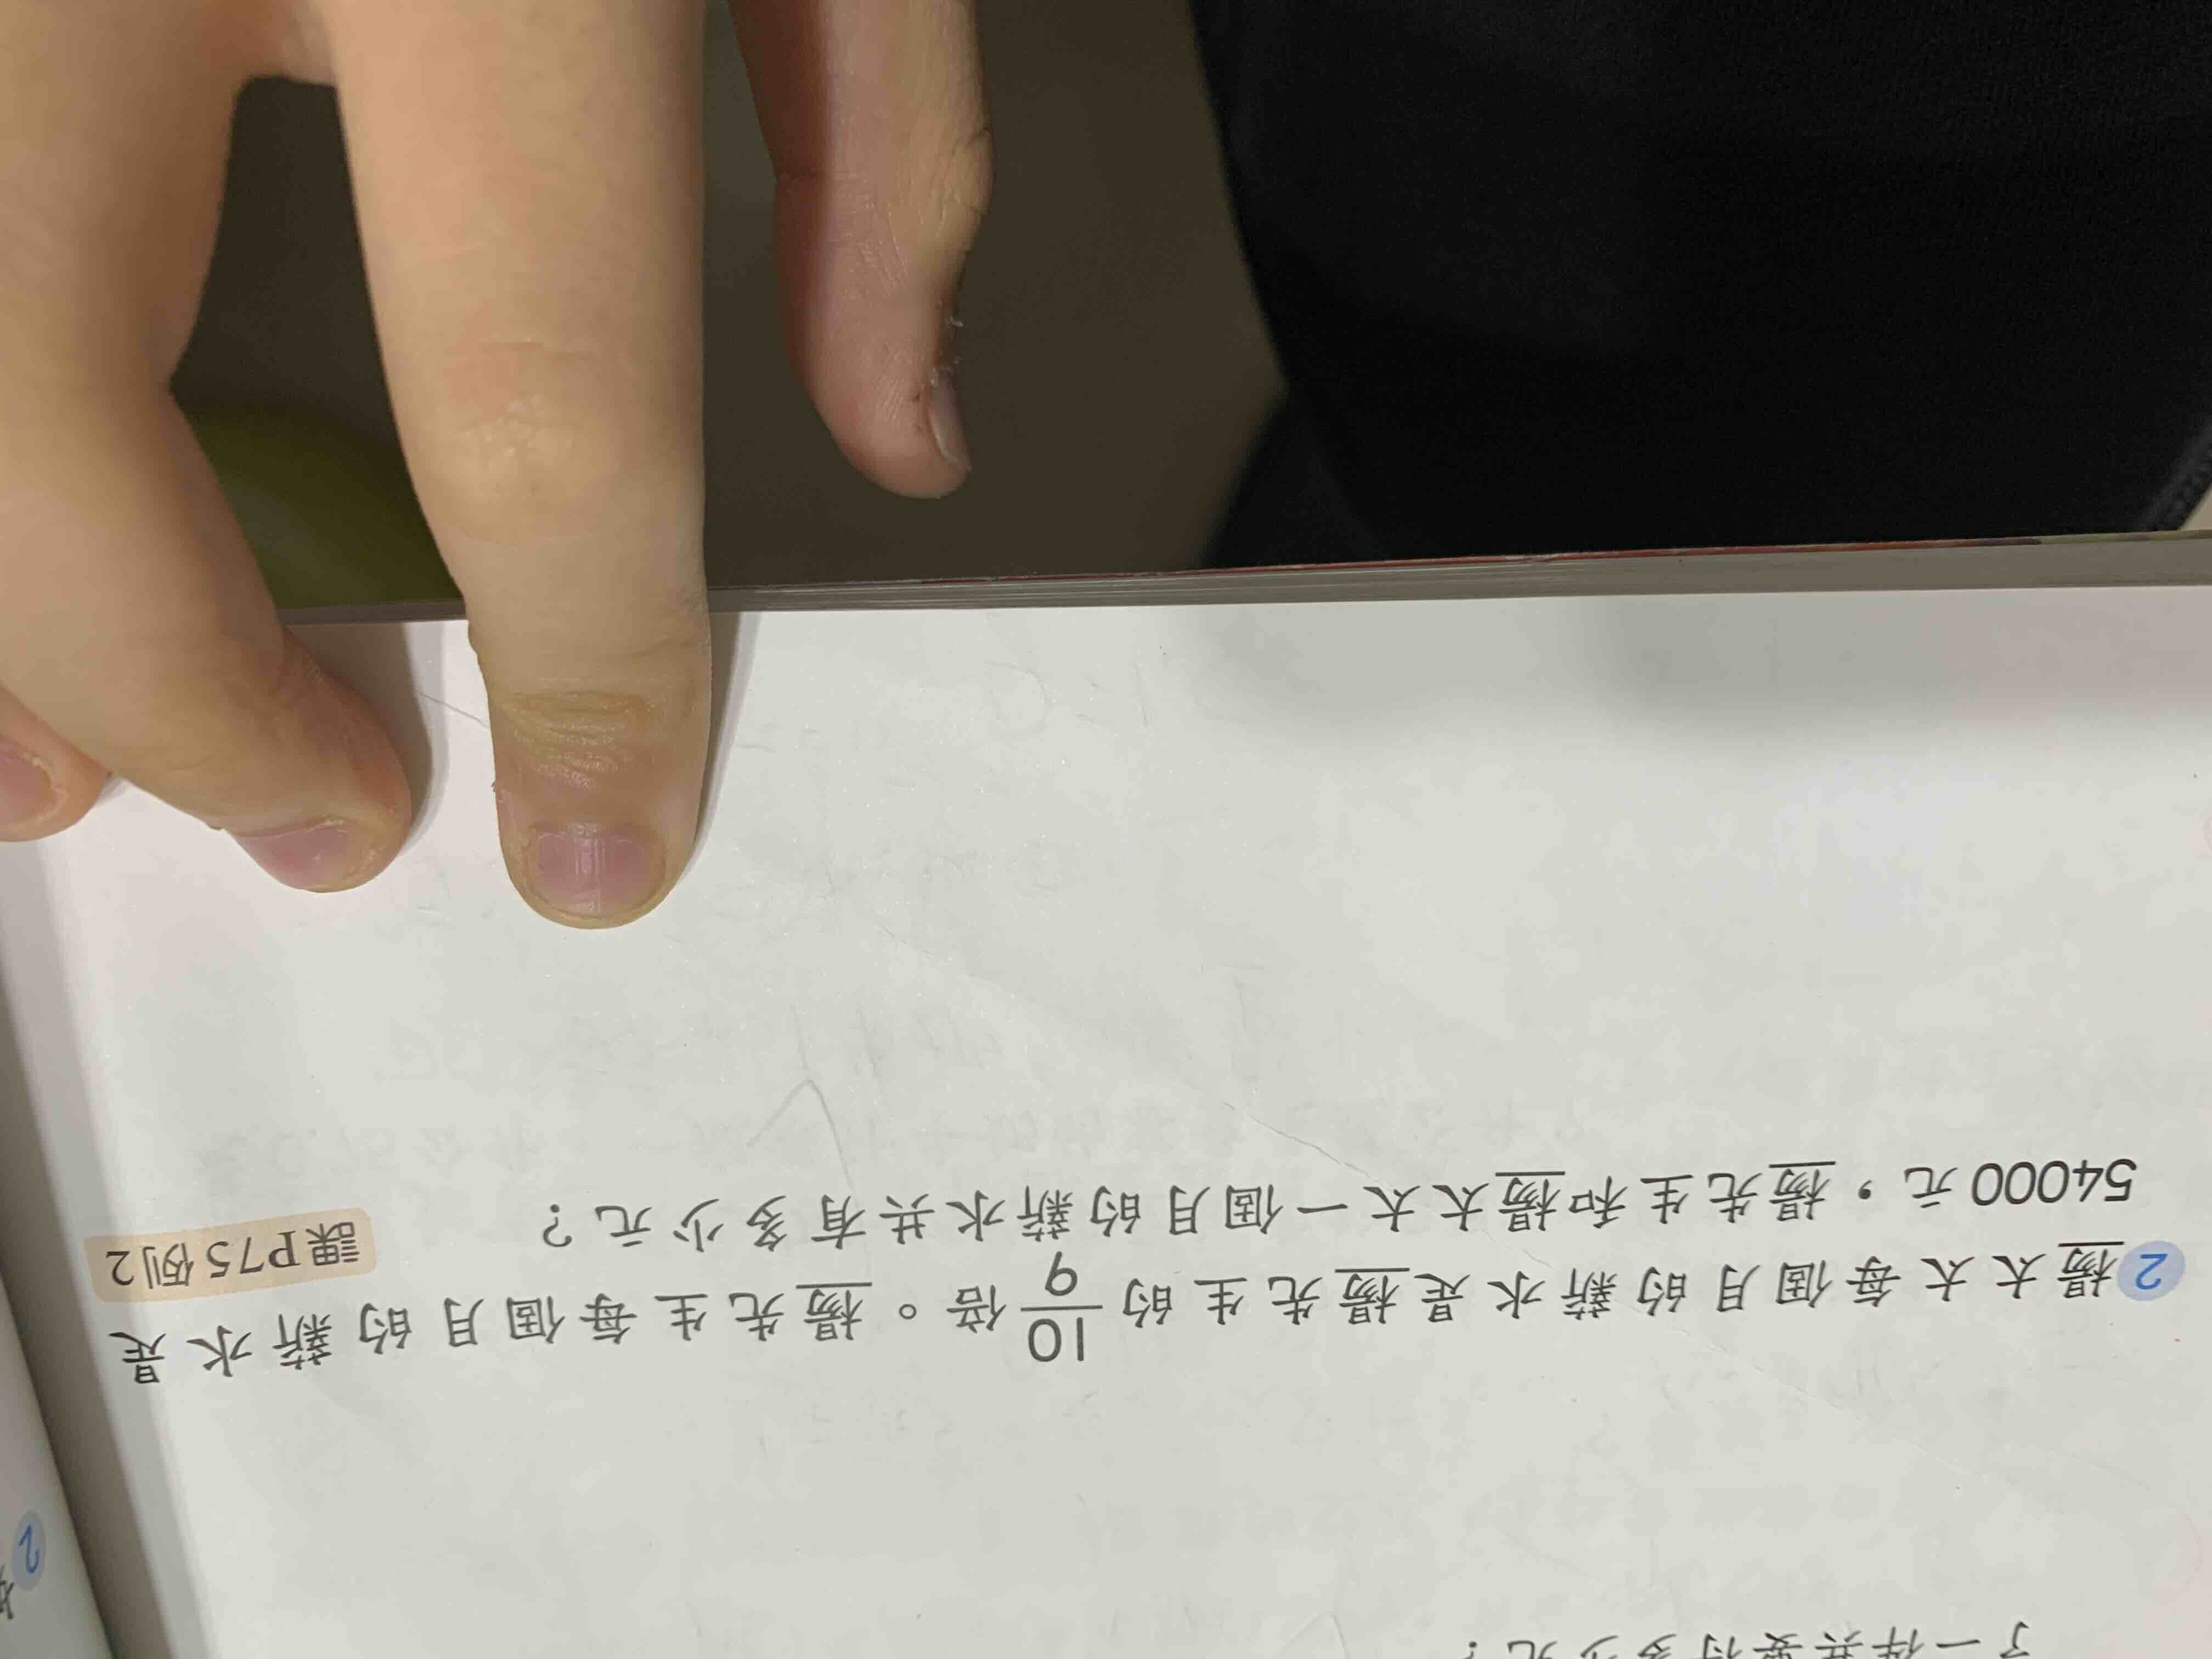 共要付多少元？
2 楊太太每個月的薪水是楊先生的10/9倍。楊先生每個月的薪水是
54000元，楊先生和楊太太一個月的薪水共有多少元？
課P75例2
2